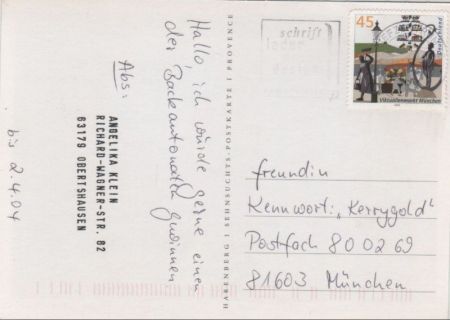 Hallo, ich würde gerne einen
der Backautomaten gewinnen
Abs:
ANGELIKA KLEIN
RICHARD-WAGNER-STR. 82
63179 OBERTSHAUSEN
bis 2.4.04
HARENBERG | SEHNSUCHTS-POSTKARTE | PROVENCE
schrift
45
Deutschland
Viktualienmarkt München
freundin
Kennwort: „Kerrygold"
Postfach 80 02 69
81603 München